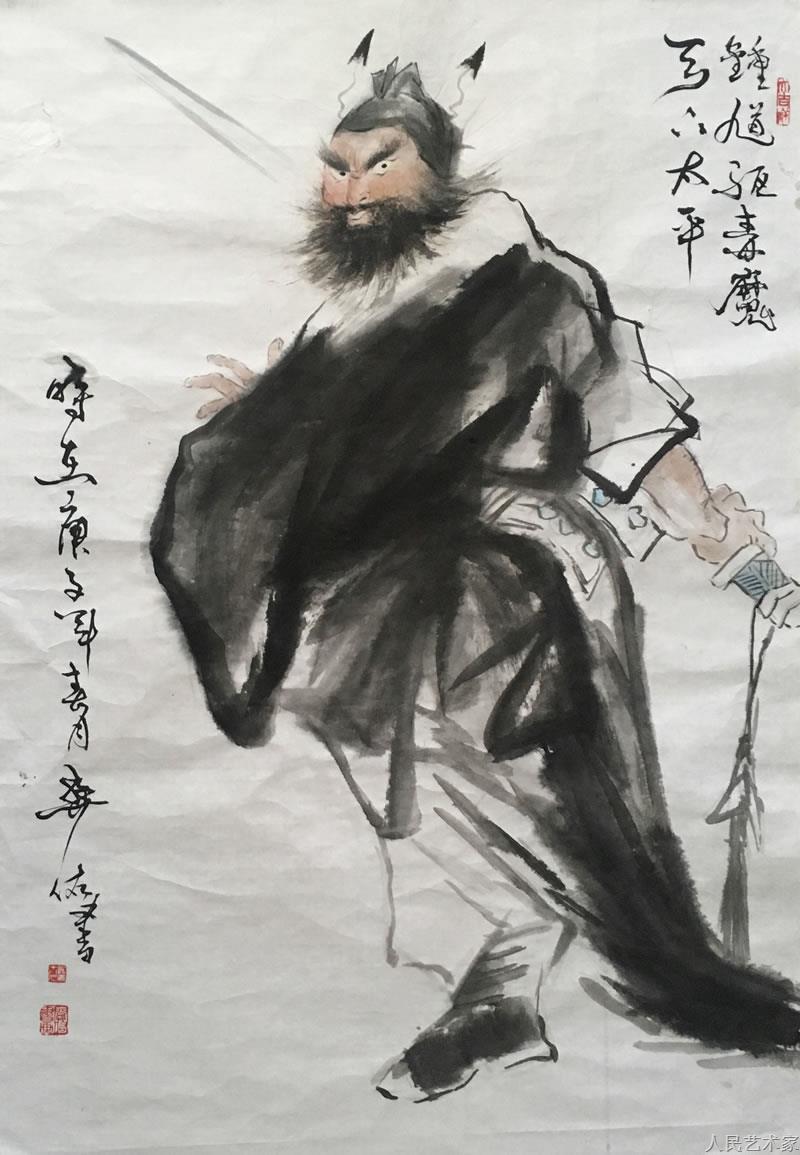 鍾馗驱毒魔
天下太平
時在庚子年春月
佑書
人民艺术家